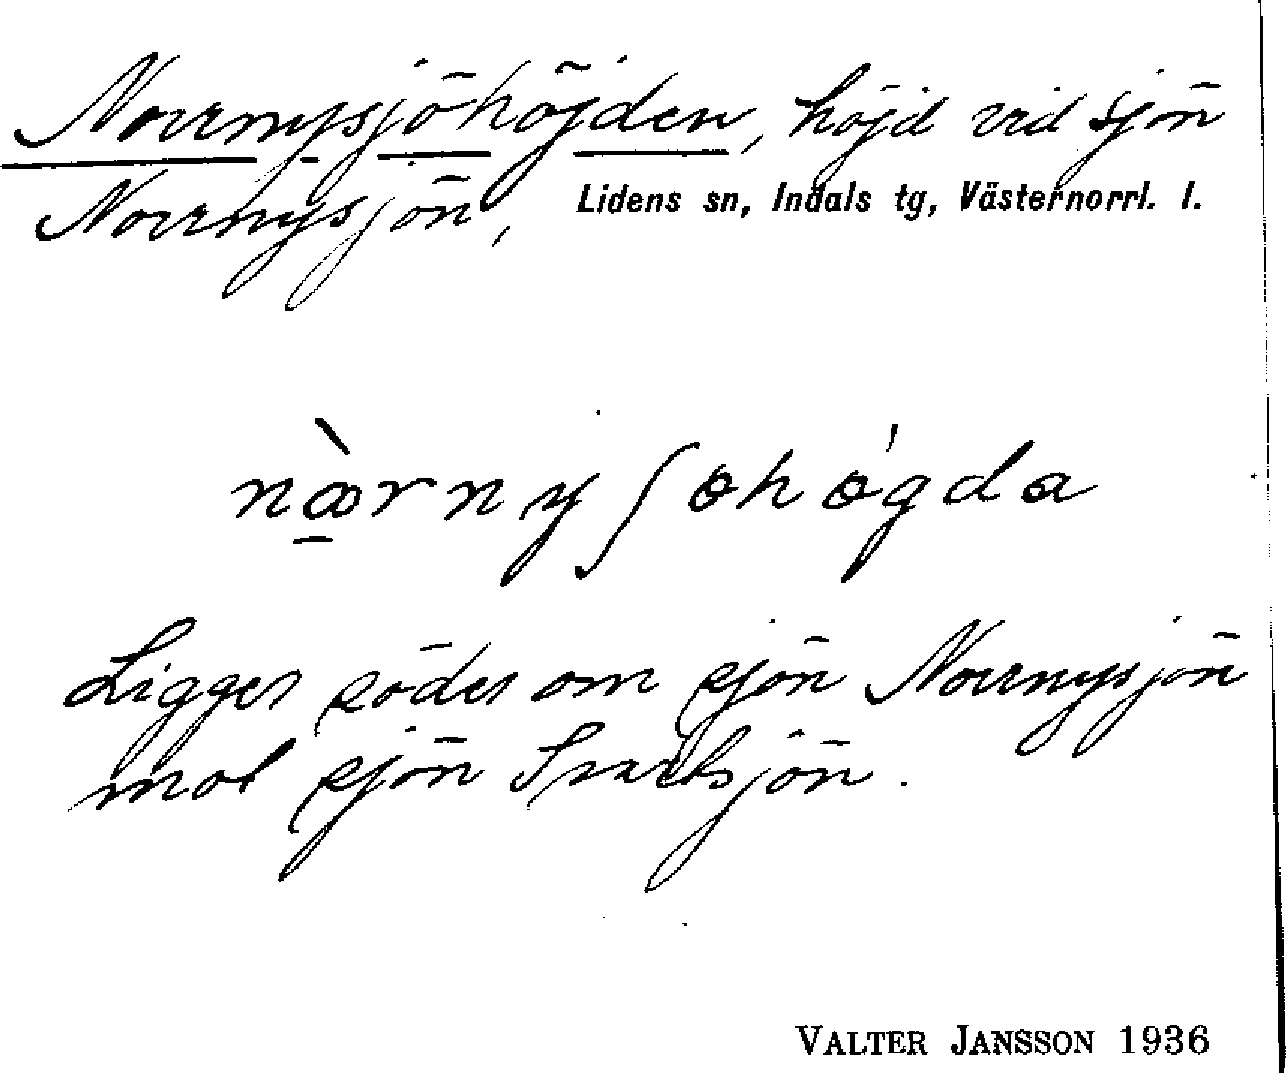 Norrnysjöhöjden, höjd vid sjön
Norrnysjön, Lidens sn, Indals tg, Västernorrl. l.
nœ̀rnyʃɵhɵ́gda
Ligger söder om sjön Norrnysjön
mot sjön Svartsjön.
VALTER JANSSON 1936